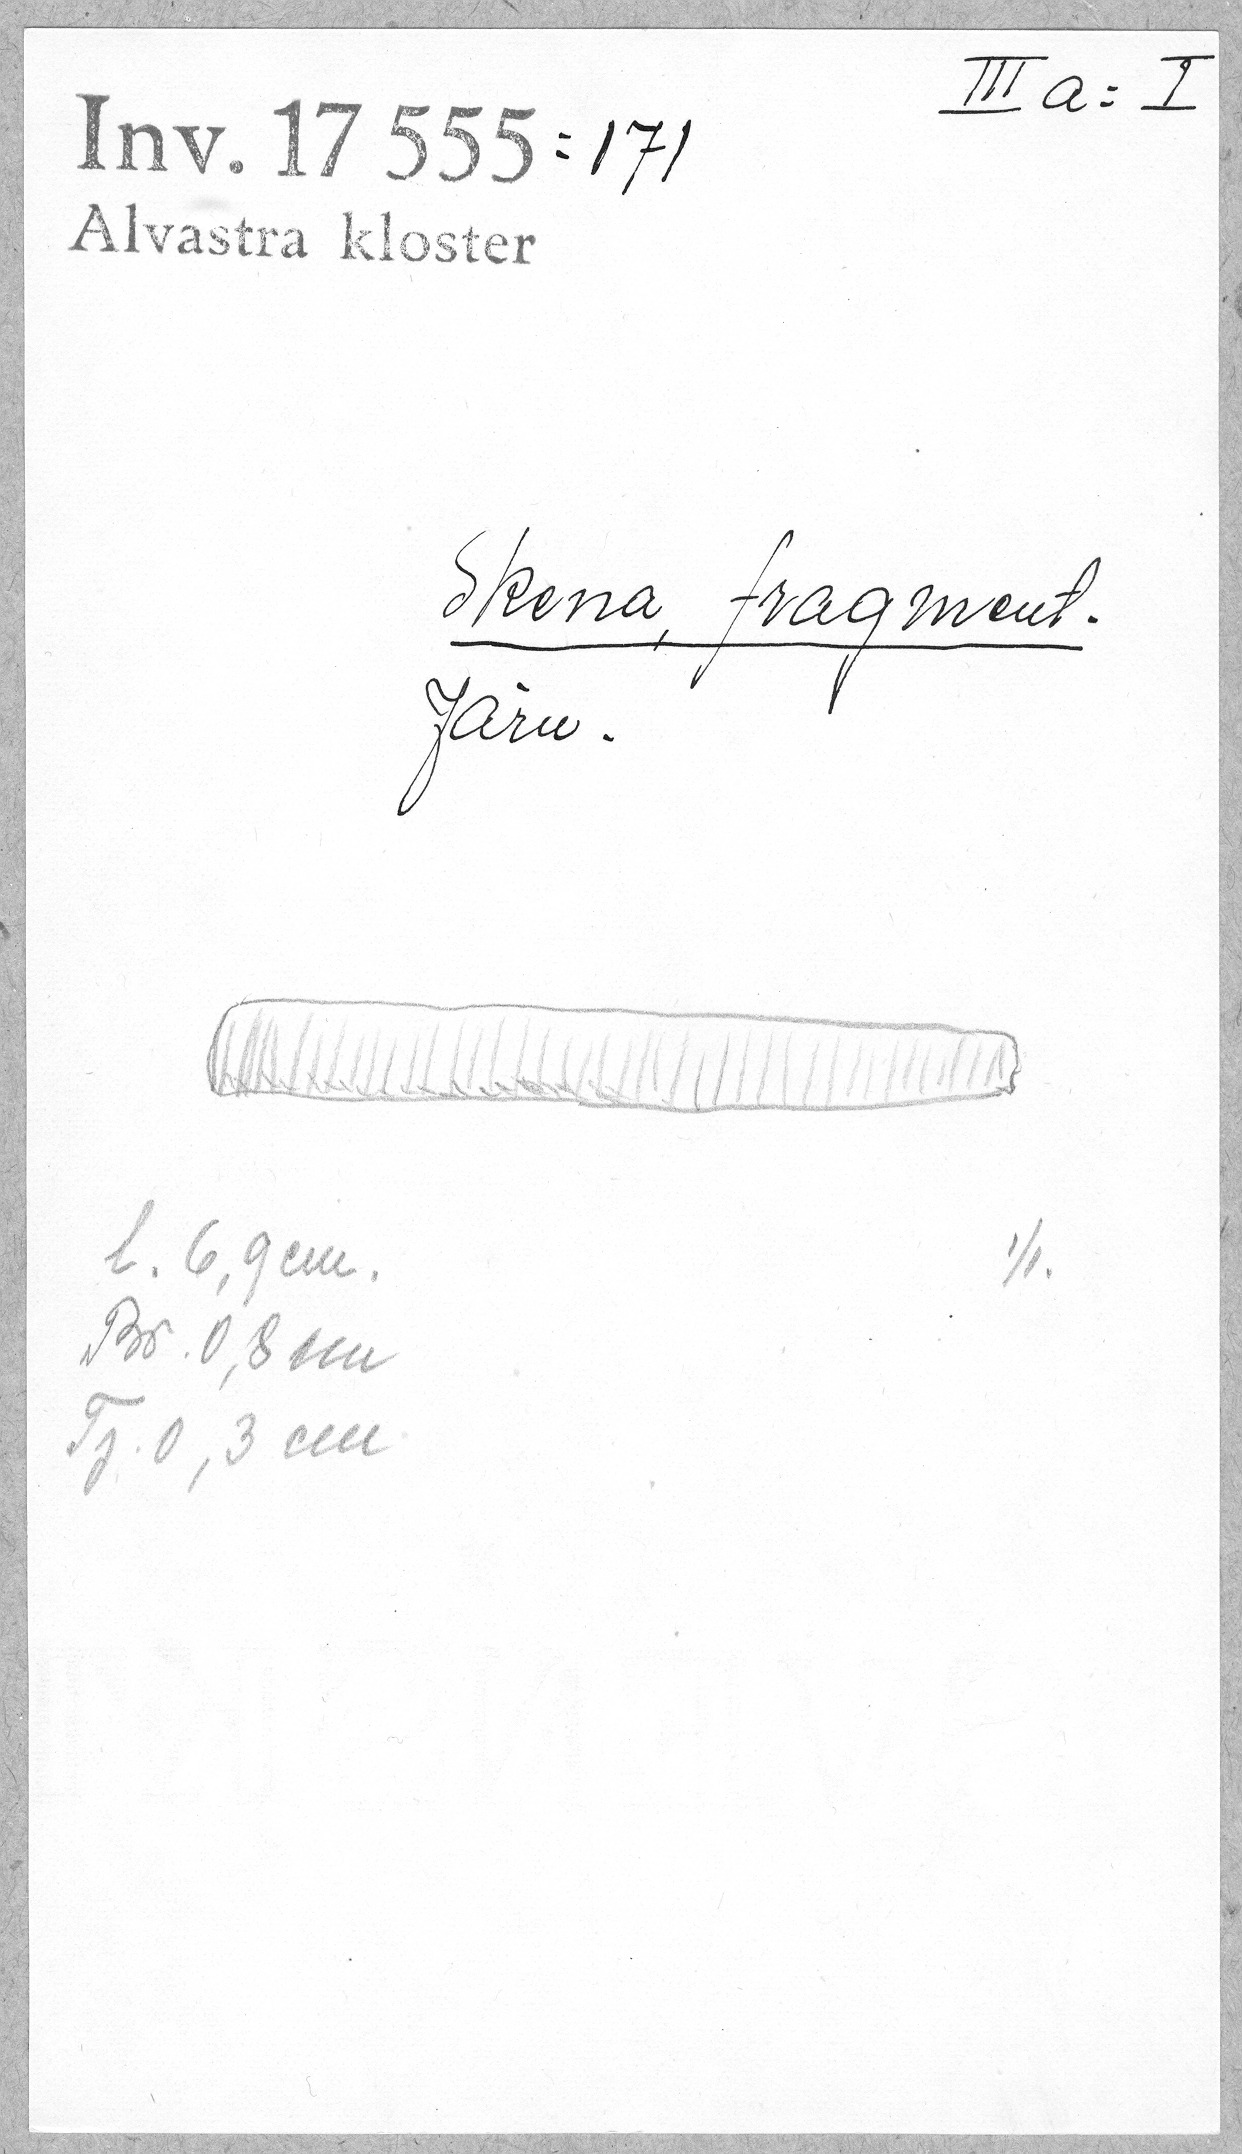 III a: I
Inv. 17 555:171
Alvastra kloster
Skena, fragment.
Järn.
L. 6,9 cm.
1/1.
Br. 0,8 cm
Tj. 0,3 cm